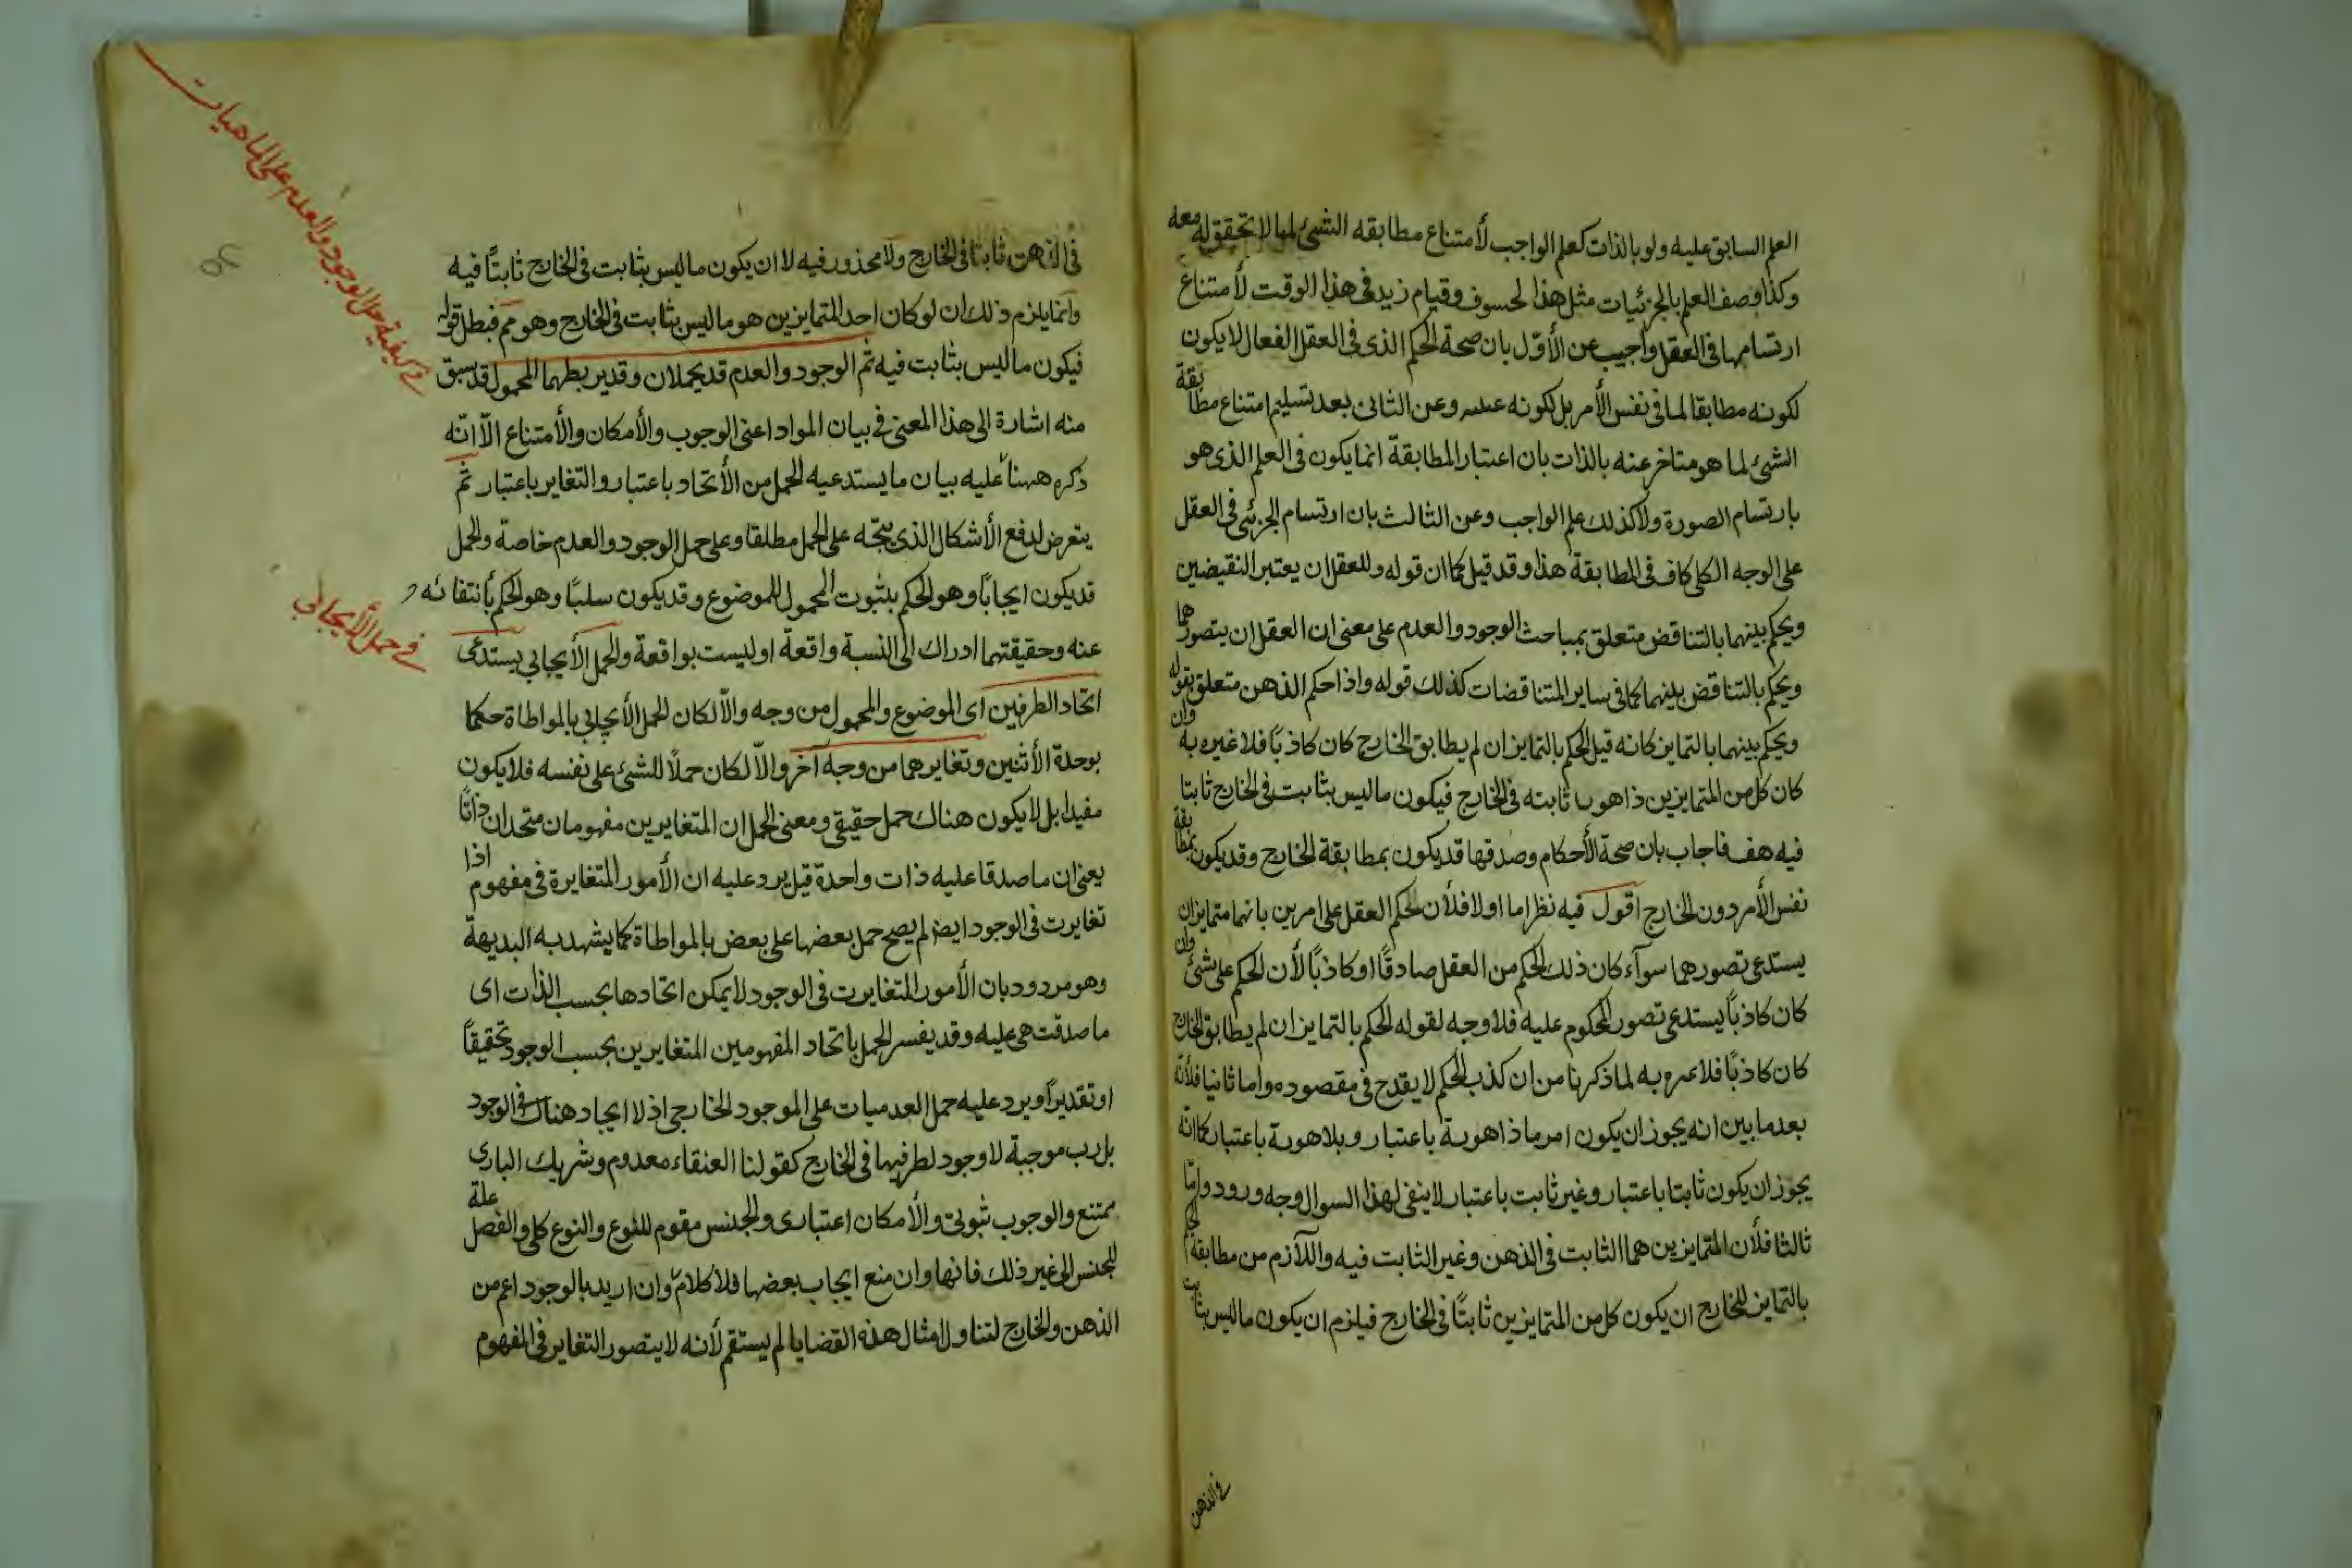 العلم السابق عليه ولو بالذات كعلم الواجب لأمتناع مطابقه الشئ لما لا تحقق له معه
وكذا وصف العلم بالجزئيات مثل هذا لحسوف وقيام زيد فى هذا الوقت لأمتناع
ارتسامها فى العقل واجيب عن الأوّل بان صحة الحكم الذى فى العقل الفعال لا يكون
لكونه مطابقا لما فى نفس الأمر بل لكونه عينه وعن الثانى بعد تسليم امتناع مطابقة
الشئ لما هو متاخر عنه بالذات بان اعتبار المطابقة انما يكون فى العلم الذى هو
بارتسام الصورة ولا كذلك علم الواجب وعن الثالث بان ارتسام الجزئى فى العقل
على الوجه الكلى كاف فى المطابقة هذا وقد قيل كما ان قوله وللعقل ان يعتبر النقيضين
ويحكم بينهما بالتناقض متعلق بمباحث الوجود والعدم على معنى ان العقل ان يتصورهما
ويحكم بالتناقض بينهما كما فى ساير المتناقضات كذلك قوله واذا حكم الذهن متعلق بقوله
ويحكم بينهما بالتمايز كانه قيل الحكم بالتمايز ان لم يطابق الخارج كان كاذبًا فلا عبره به وان
كان كل من المتمايزين ذا هوية ثابته فى الخارج فيكون ما ليس بثابت فى الخارج ثابتا
فيه هف فاجاب بان صحة الأحكام وصدقها قد يكون بمطابقة الخارج وقد يكون بمطابقة
نفس الأمر دون الخارج اقول فيه نظر اما اولا فلأن لحكم العقل على امرين بانهما متمايزان
يستدعى تصورهما سوآء كان ذلك الحكم من العقل صادقًا او كاذبًا لأن الحكم على شئ وان
كان كاذبًا يستدعى تصور المحكوم عليه فلا وجه لقوله الحكم بالتمايز ان لم يطابق الخارج
كان كاذبًا فلا عبره به لما ذكرنا من ان كذب الحكم لا يقدح فى مقصوده واما ثانيا فلأنّه
بعد ما بين انه يجوز ان يكون امر ما ذا هوية باعتبار وبلا هوية باعتبار كما انّه
يجوز ان يكون ثابتا باعتبار وغير ثابت باعتبار لا يبقى لهذا السوال وجه ورود وامّا
ثالثا فلأن المتمايزين هما الثابت فى الذهن وغير الثابت فيه واللآزم من مطابقة الحكم
بالتمايز للخارج ان يكون كل من المتمايزين ثابتًا فى الخارج فيلزم ان يكون ما ليس بثابت
فى الذهن
فى الذهن ثابتًا فى الخارج ولا محذور فيه لا ان يكون ما ليس بثابت فى الخارج ثابتًا فيه
وانما يلزم ذلك ان لو كان احد المتمايزين هو ما ليس بثابت فى الخارج وهو مم فبطل قوله
فيكون ما ليس بثابت فيه ثم الوجود والعدم قد يحملان وقد يربط بهما المحمول قد سبق
منه اشارة الى هذا المعنى فى بيان المواد اعنى الوجوب والأمكان والأمتناع الاّ انّه
ذكره ههنا عليه بيان ما يستدعيه الحمل من الأتحاد باعتبار والتغاير باعتبار ثم
يتعرض لدفع الأشكال الذى يتجّه على الحمل مطلقا وعلى حمل الوجود والعدم خاصة والحمل
قد يكون ايجابًا وهو الحكم بثبوت المحمول للموضوع وقد يكون سلبًا وهو الحكم بأنتفائه
عنه وحقيقتهما ادراك الى النسبة واقعة او ليست بواقعة والحمل الأيجابى يستدعى
اتحاد الطرفين اى الموضوع والمحمول من وجه والاّ لكان الحمل الأيجابى بالمواطاة حكما
بوحدة الأثنين وتغايرهما من وجه آخر والاّ لكان حملاً للشئ على نفسه فلا يكون
مفيدا بل لا يكون هناك حمل حقيقى ومعنى الحمل ان المتغايرين مفهومان متحدان ذاتًا
يعنى ان ما صدقا عليه ذات واحدة قيل يرد عليه ان الأمور المتغايرة فى مفهوم اذا
تغايرت فى الوجود ايضا لم يصح حمل بعضها على بعض بالمواطاة كما يشهد به البديهة
وهو مردود بان الأمور المتغايرت فى الوجود لا يمكن اتحادها بحسب الذات اى
ما صدقت هى عليه وقد يفسر الحمل باتحاد المفهومين المتغايرين بحسب الوجود تحقيقًا
او تقديرًا ويرد عليه حمل العدميات على الموجود الخارجى اذ لا ايجاد هناك فى الوجود
بل رب موجبة لا وجود لطرفيها فى الخارج كقولنا العنقاء معدوم وشريك البارى
ممتنع والوجوب ثبوتى والأمكان اعتبارى والجنس مقوم للنوع والنوع كلى والفصل علة
للجنس الى غير ذلك فانها وان منع ايجاب بعضها فلا كلام وان اريد بالوجود اعم من
الذهن والخارج لتناول امثال هذه القضايا لم يستقم لأنه لا يتصور التغاير فى المفهوم
فى كيفية حمل الوجود والعدم على الماهيات
فى حمل الأيجابى